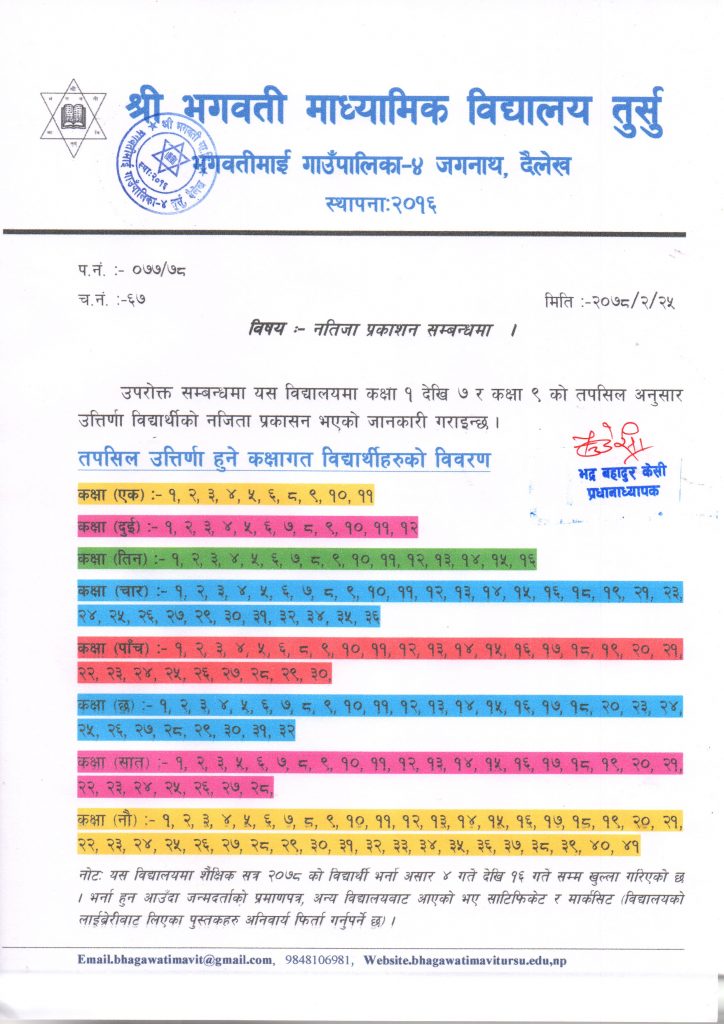 श्री भगवती माध्यामिक विद्यालय तुर्सु
भगवतीमाई गाउँपालिका-४ जगनाथ, दैलेख
स्थापना:२०१६
प.नं. :- ०७७/७८
च.नं. :-६७
मिति :-२०७८/२/२५
विषय :- नतिजा प्रकाशन सम्बन्धमा ।
उपरोक्त सम्बन्धमा यस विद्यालयमा कक्षा १ देखि ७ र कक्षा ९ को तपसिल अनुसार
उत्तिर्णा विद्यार्थीको नजिता प्रकासन भएको जानकारी गराइन्छ ।
भद्र बहादुर केसी
प्रधानाध्यापक
तपसिल उत्तिर्णा हुने कक्षागत विद्यार्थीहरुको विवरण
कक्षा (एक) :- १, २, ३, ४, ५, ६, ८, ९, १०, ११
कक्षा (दुई) :- १, २, ३, ४, ५, ६, ७, ८, ९, १०, ११, १२
कक्षा (तिन) :- १, २, ३, ४, ५, ६, ७, ८, ९, १०, ११, १२, १३, १४, १५, १६
कक्षा (चार) :- १, २, ३, ४, ५, ६, ७, ८, ९, १०, ११, १२, १३, १४, १५, १६, १८, १९, २१, २३,
२४, २५, २६, २७, २९, ३०, ३१, ३२, ३४, ३५, ३६
कक्षा (पाँच) :- १, २, ३, ४, ५, ६, ८, ९, १०, ११, १२, १३, १४, १५, १६, १७, १८, १९, २०, २१,
२२, २३, २४, २५, २६, २७, २८, २९, ३०,
कक्षा (छ) :- १, २, ३, ४, ५, ६, ७, ८, ९, १०, ११, १२, १३, १४, १५, १६, १७, १८, २०, २३, २४,
२५, २६, २७, २८, २९, ३०, ३१, ३२
कक्षा (सात) :- १, २, ३, ५, ६, ७, ८, ९, १०, ११, १२, १३, १४, १५, १६, १७, १८, १९, २०, २१,
२२, २३, २४, २५, २६, २७, २८,
कक्षा (नौ) :- १, २, ३, ४, ५, ६, ७, ८, ९, १०, ११, १२, १३, १४, १५, १६, १७, १८, १९, २०, २१,
२२, २३, २४, २५, २६, २७, २८, २९, ३०, ३१, ३२, ३३, ३४, ३५, ३६, ३७, ३८, ३९, ४०, ४१
नोट: यस विद्यालयमा शैक्षिक सत्र २०७८ को विद्यार्थी भर्ना असार ४ गते देखि १६ गते सम्म खुल्ला गरिएको छ
। भर्ना हुन आउँदा जन्मदर्ताको प्रमाणपत्र, अन्य विद्यालयवाट आएको भए साटिफिकेट र मार्कसिट (विद्यालयको
लाईब्रेरीवाट लिएका पुस्तकहरु अनिवार्य फिर्ता गर्नुपर्ने छ) ।
Email.bhagawatimavit@gmail.com, 9848106981, Website.bhagawatimavitursu.edu,np